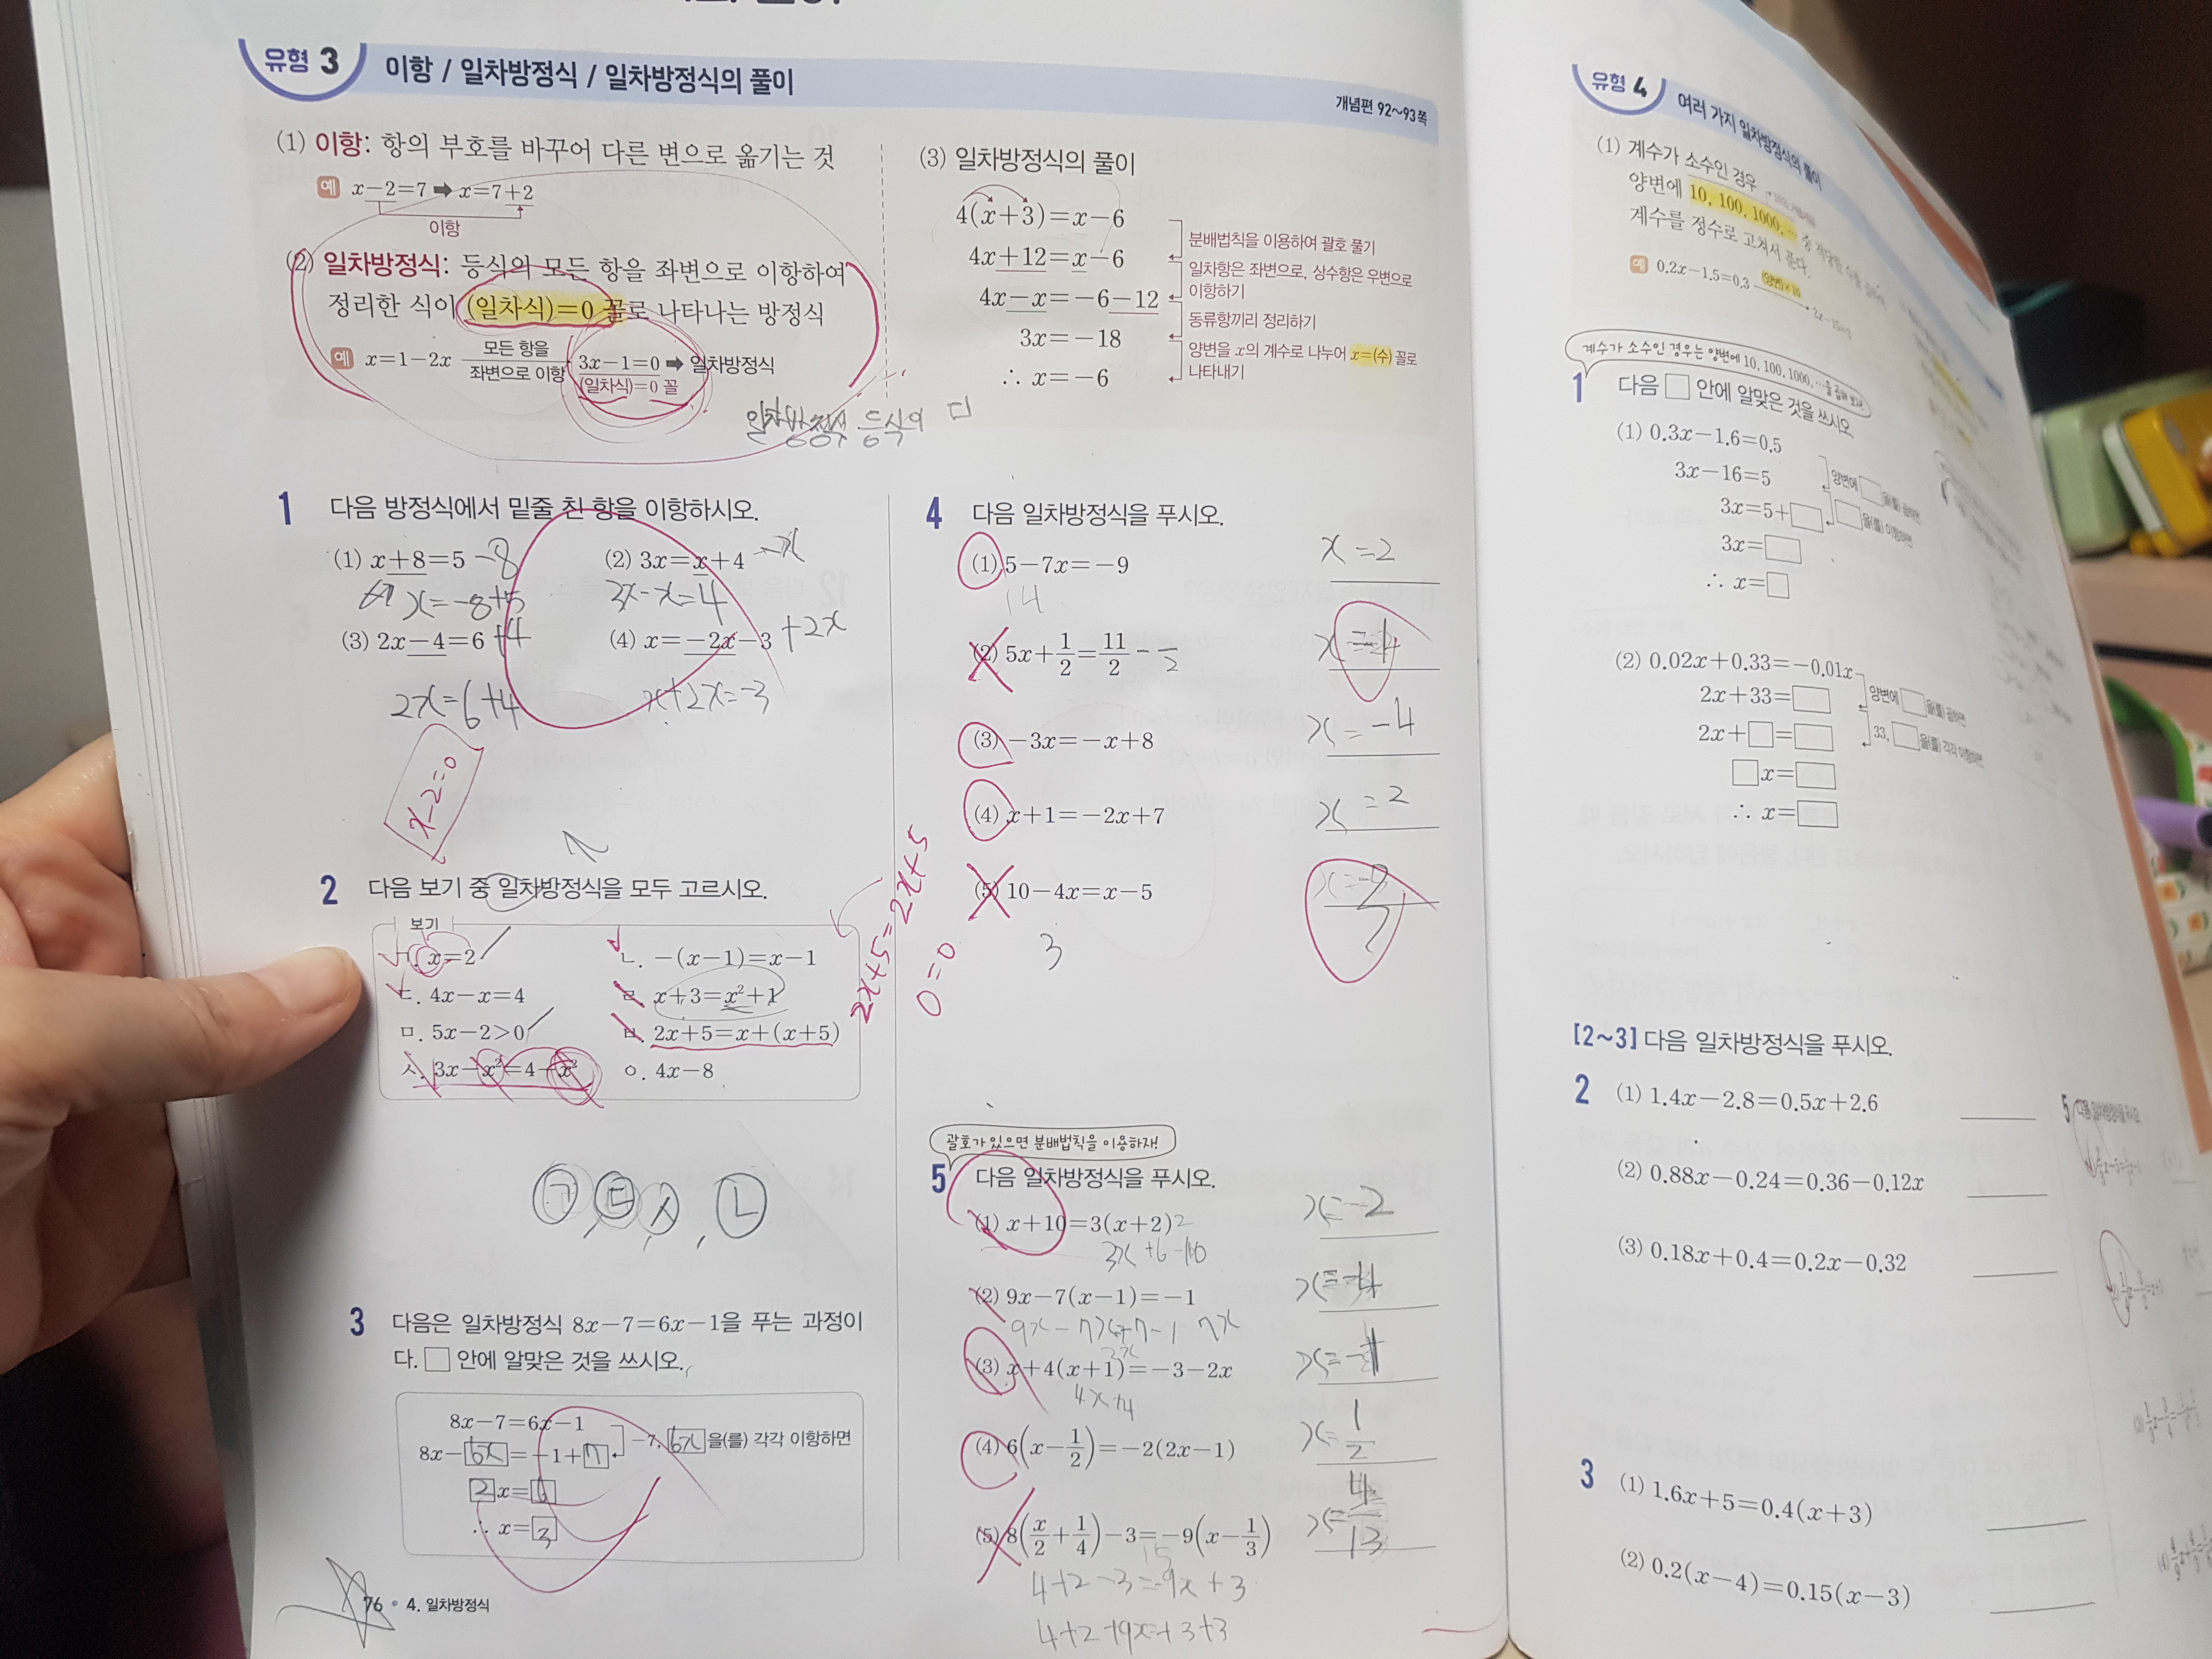 유형 3 이항 / 일차방정식 / 일차방정식의 풀이
개념편 92~93쪽
(1) 이항: 항의 부호를 바꾸어 다른 변으로 옮기는 것
예 x-2=7 ➡ x=7+2
이항
(2) 일차방정식: 등식의 모든 항을 좌변으로 이항하여
정리한 식이 (일차식)=0 꼴로 나타나는 방정식
예 x=1-2x 모든 항을 좌변으로 이항 3x-1=0 ➡ 일차방정식
(일차식)=0 꼴
일차방정식 등식의
(3) 일차방정식의 풀이
4(x+3)=x-6
분배법칙을 이용하여 괄호 풀기
4x+12=x-6
일차항은 좌변으로, 상수항은 우변으로
이항하기
4x-x=-6-12
동류항끼리 정리하기
3x=-18
양변을 x의 계수로 나누어 x=(수) 꼴로
나타내기
∴ x=-6
1 다음 방정식에서 밑줄 친 항을 이항하시오.
(1) x+8=5 -8
x=-8+5
(2) 3x=x+4 -x
3x-x=4
(3) 2x-4=6 +4
2x=6+4
(4) x=-2x-3 +2x
x+2x=-3
x-2=0
2 다음 보기 중 일차방정식을 모두 고르시오.
보기
ㄱ. x=2
ㄴ. -(x-1)=x-1
ㄷ. 4x-x=4
ㄹ. x+3=x²+1
ㅁ. 5x-2>0
ㅂ. 2x+5=x+(x+5)
ㅅ. 3x-x²=4-x²
ㅇ. 4x-8
2x+5=2x+5
0=0
ㄱ, ㄷ, ㅅ, ㄴ
3 다음은 일차방정식 8x-7=6x-1을 푸는 과정이
다. □ 안에 알맞은 것을 쓰시오.
8x-7=6x-1
8x-6x=-1+7
-7, 6x을(를) 각각 이항하면
2x=6
∴ x=3
76 • 4. 일차방정식
4 다음 일차방정식을 푸시오.
(1) 5-7x=-9 x=2
14
(2) 5x+1/2=11/2
(3) -3x=-x+8 x=-4
(4) x+1=-2x+7 x=2
(5) 10-4x=x-5
3
괄호가 있으면 분배법칙을 이용하자!
5 다음 일차방정식을 푸시오.
(1) x+10=3(x+2) x=-2
3x+6-10
(2) 9x-7(x-1)=-1 x=-4
9x-7x+7-1 7x
(3) x+4(x+1)=-3-2x
4x+4
(4) 6(x-1/2)=-2(2x-1) x=1/2
(5) 8(x/2+1/4)-3=-9(x-1/3)
15
4+2-3=-9x+3
4+2+9x=+3+3
유형 4 여러 가지 일차방정식의 풀이
(1) 계수가 소수인 경우
양변에 10, 100, 1000, …
계수를 정수로 고쳐서 푼다.
예 0.2x-1.5=0.3 (양변)×10
계수가 소수인 경우는 양변에 10, 100, 1000, …을 곱해 보자!
1 다음 □ 안에 알맞은 것을 쓰시오.
(1) 0.3x-1.6=0.5
양변에 □을(를) 곱하면
3x-16=5
□을(를) 이항하면
3x=5+□
3x=□
∴ x=□
(2) 0.02x+0.33=-0.01x
양변에 □을(를) 곱하면
2x+33=□
33, □을(를) 각각 이항하면
2x+□=□
□x=□
∴ x=□
[2~3] 다음 일차방정식을 푸시오.
2 (1) 1.4x-2.8=0.5x+2.6
(2) 0.88x-0.24=0.36-0.12x
(3) 0.18x+0.4=0.2x-0.32
3 (1) 1.6x+5=0.4(x+3)
(2) 0.2(x-4)=0.15(x-3)
5